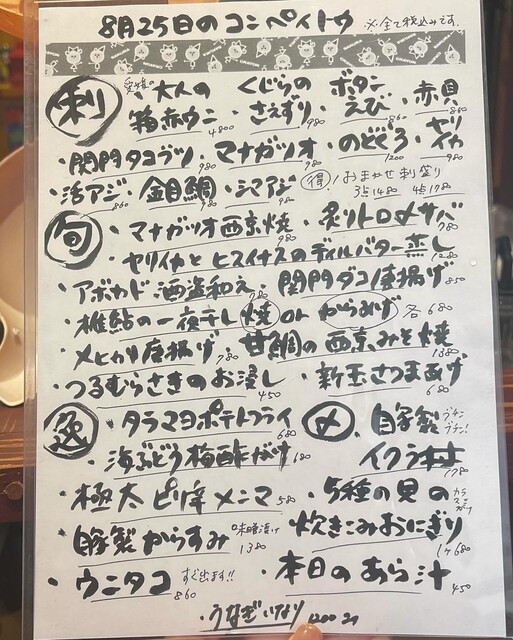 8月25日のコンペイトウ ※全て税込みです。
刺 愛媛の 大人の箱赤ウニ 4800 ・くじらのさえずり 980 ・ボタンえび 860 ・赤貝 860
・関門タコブツ 980 ・マナガツオ 980 ・のどぐろ 1200 ・ヤリイカ 980
・活アジ 860 ・金目鯛 980 ・シマアジ 980 得!おまかせ刺盛り 3点1480 4点1780
旬 ・マナガツオ西京焼 980 ・炙りトロ〆サバ 780
・ヤリイカとヒスイナスのディルバター蒸し 1280
・アボカド酒盗和え 780 ・関門ダコ唐揚げ 850
・稚鮎の一夜干し 焼 or からあげ 各680
・メヒカリ唐揚げ 780 ・甘鯛の西京みそ焼 1380
・つるむらさきのお浸し 450 ・新玉さつまあげ 680
逸 ・タラマヨポテトフライ 680
・海ぶどう梅酢がけ 680
・極太ピ辛メンマ 580
・自家製からすみ 味噌漬け 1380
・ウニタコ すぐ出ます!! 860
〆 ・自家製 プチンプチン!
イクラ丼 1780
・5種の貝の
炊きこみおにぎり 1ヶ680
・本日のあら汁 450
・うなぎいなり 1200 2ヶ